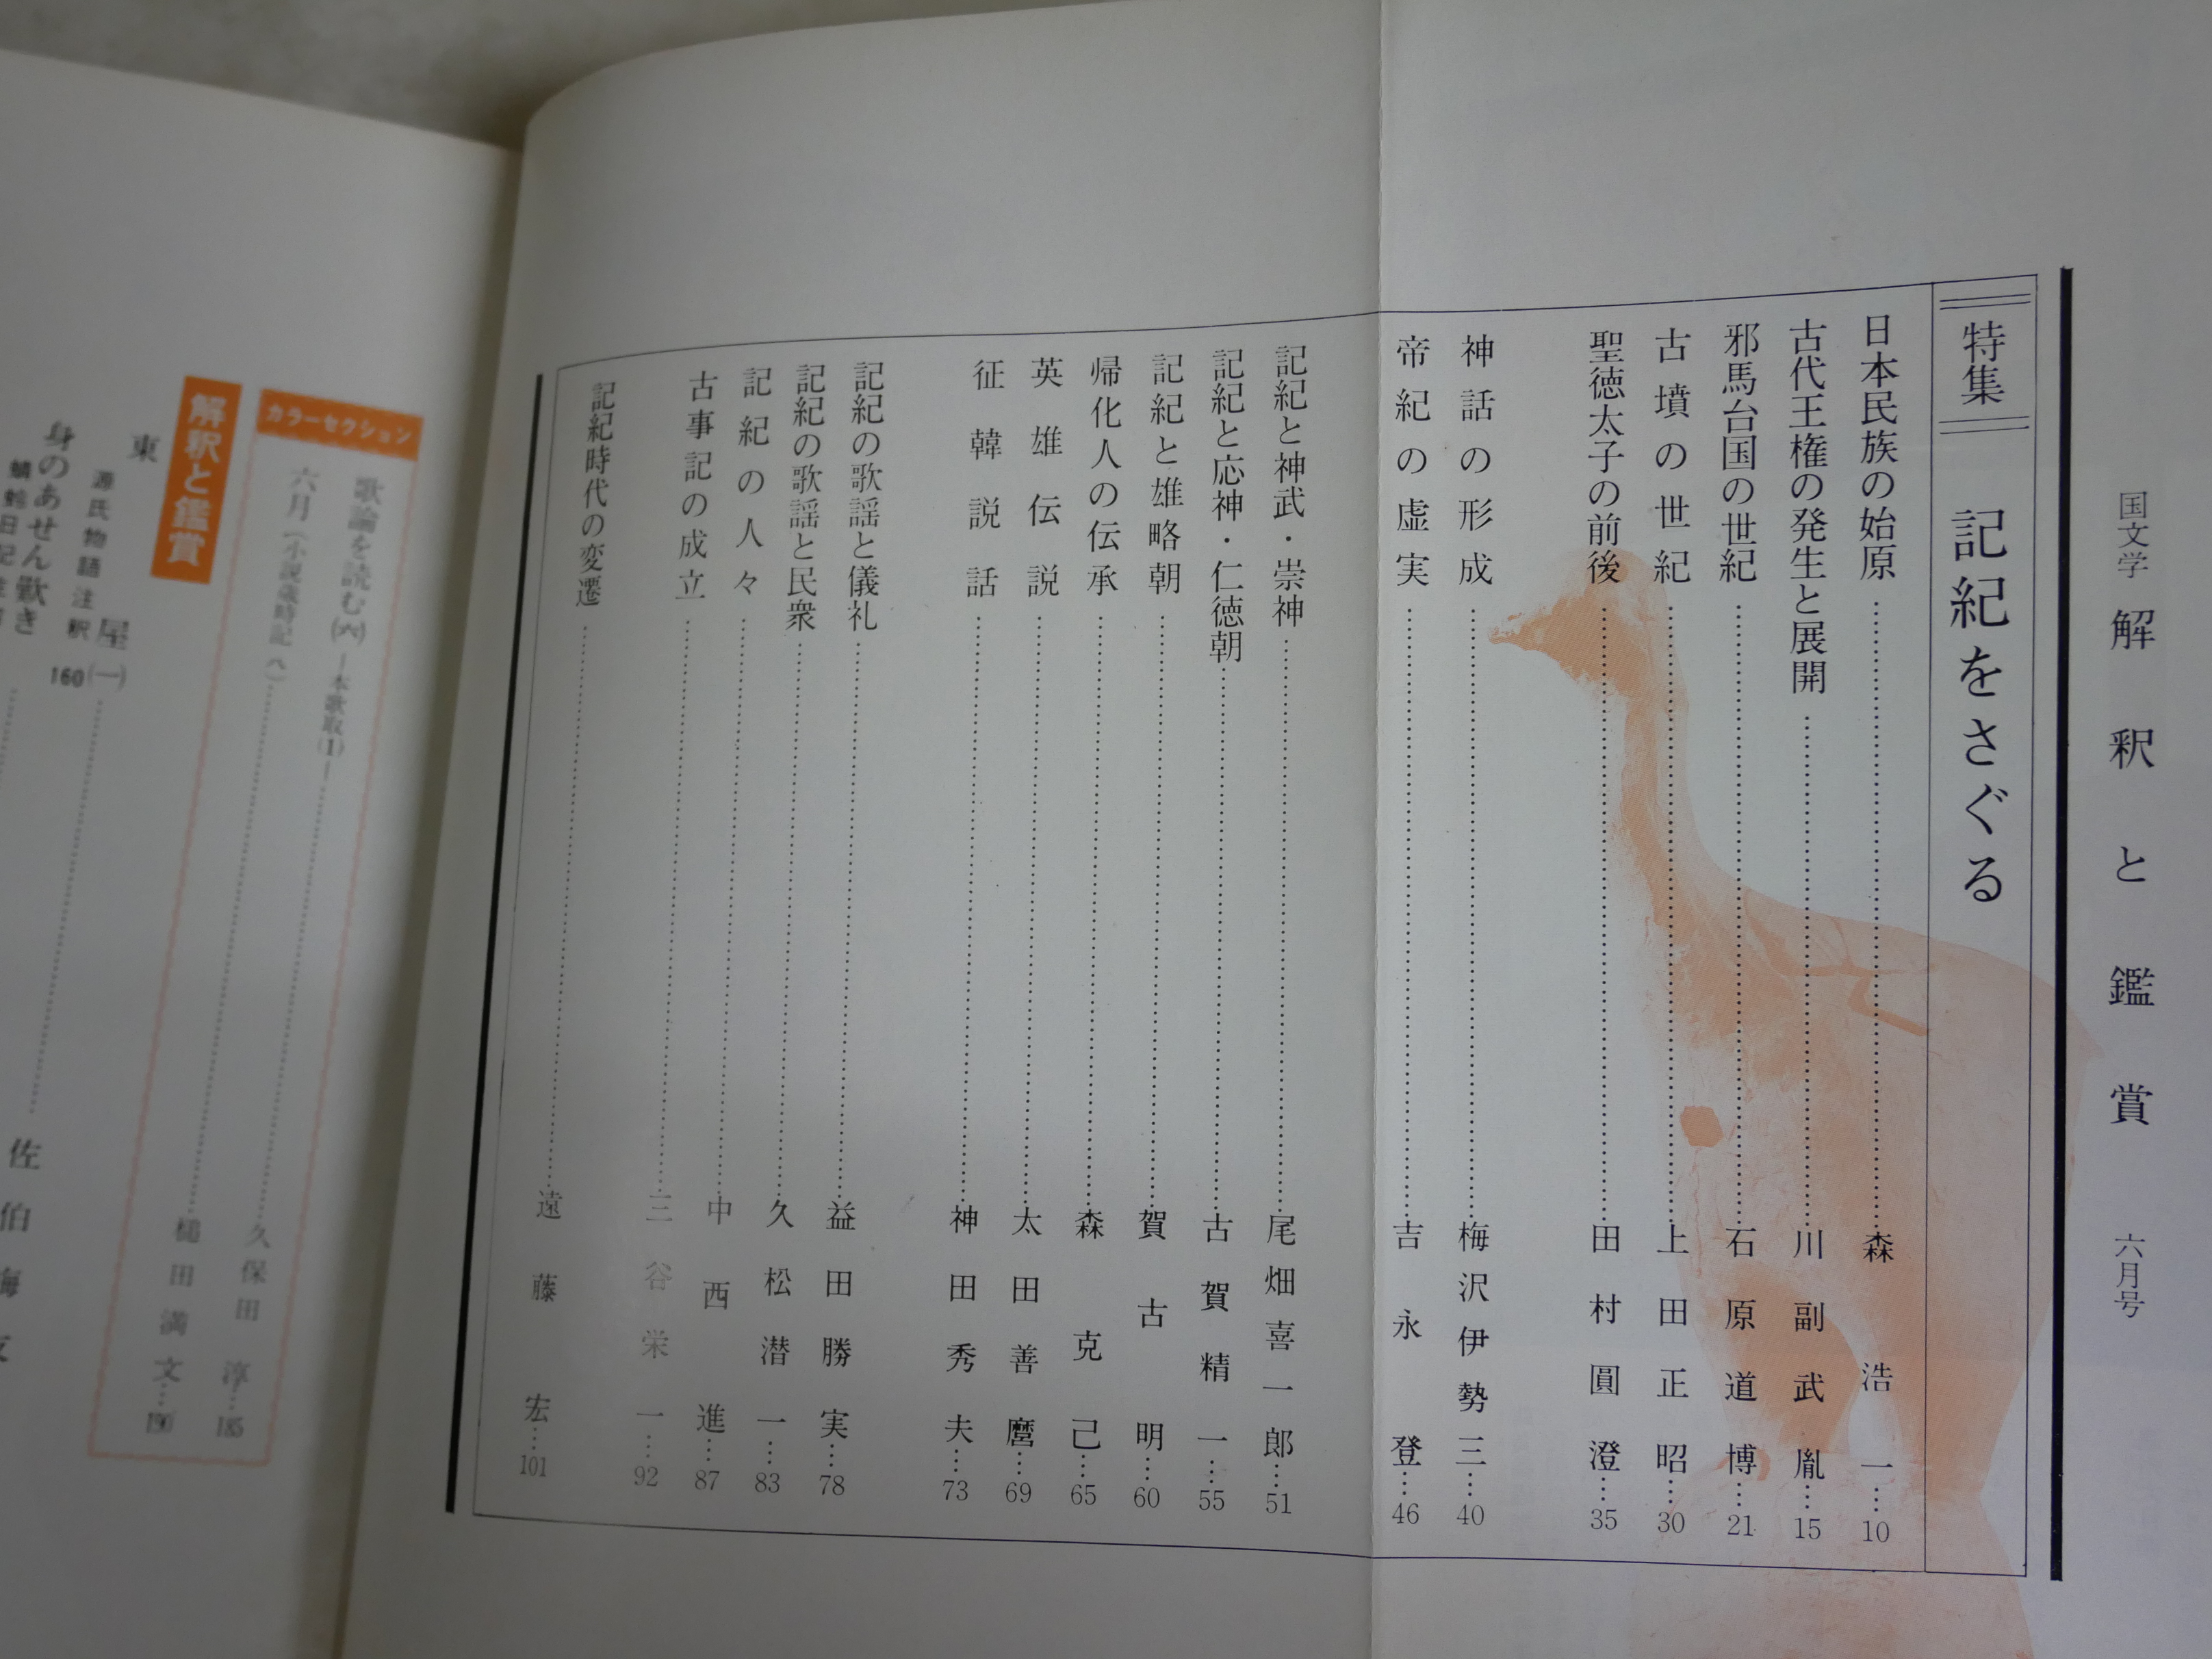 国文学 解釈と鑑賞 六月号
特集 記紀をさぐる
日本民族の始原……森浩一…10
古代王権の発生と展開……川副武胤…15
邪馬台国の世紀……石原道博…21
古墳の世紀……上田正昭…30
聖徳太子の前後……田村圓澄…35
神話の形成……梅沢伊勢三…40
帝紀の虚実……吉永登…46
記紀と神武・崇神……尾畑喜一郎…51
記紀と応神・仁徳朝……古賀精一…55
記紀と雄略朝……賀古明…60
帰化人の伝承……森克己…65
英雄伝説……太田善麿…69
征韓説話……神田秀夫…73
記紀の歌謡と儀礼……益田勝実…78
記紀の歌謡と民衆……久松潜一…83
記紀の人々……中西進…87
古事記の成立……三谷栄一…92
記紀時代の変遷……遠藤宏…101
カラーセクション
歌論を読む(六) ―本歌取(1)―……久保田淳…185
六月(小説歳時記 八)……槌田満文…190
解釈と鑑賞
東屋(一)
源氏物語注釈 160
身のあせん歎き
蜻蛉日記
佐伯梅友